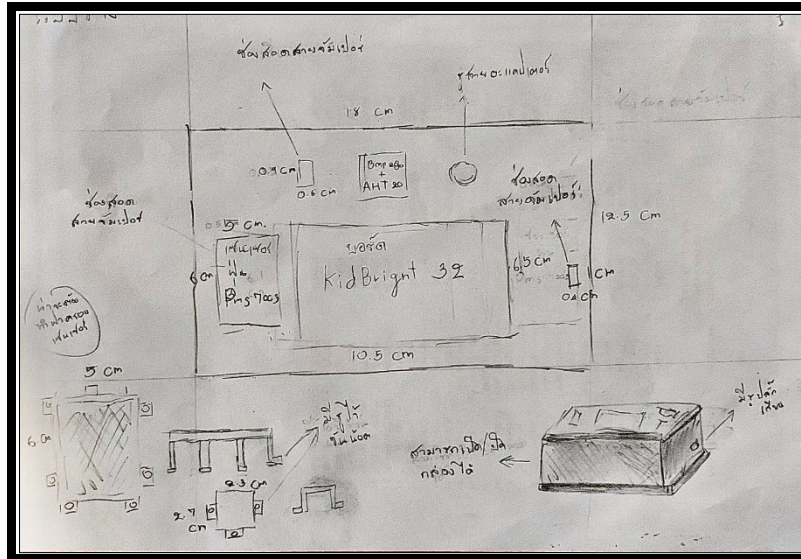 ช่องสอดสายจัมเปอร์
รูสายอะแดปเตอร์
18 cm
0.9 cm
0.6 cm
Bmp280
+
AHT 20
ช่องสอด
สายจัมเปอร์
ช่องสอด
สายจัมเปอร์
12.5 cm
5 cm.
เซนเซอร์
ฝุ่น
Pms 7003
6 cm
บอร์ด
KidBright 32
6.5 cm
1 cm
10.5 cm
5 cm
6 cm
มีรูไว้
ขันน็อต
2.3 cm
2.7
cm
สามารถเปิด/ปิด
กล่องได้
มีรูปลั๊ก
เสียบ